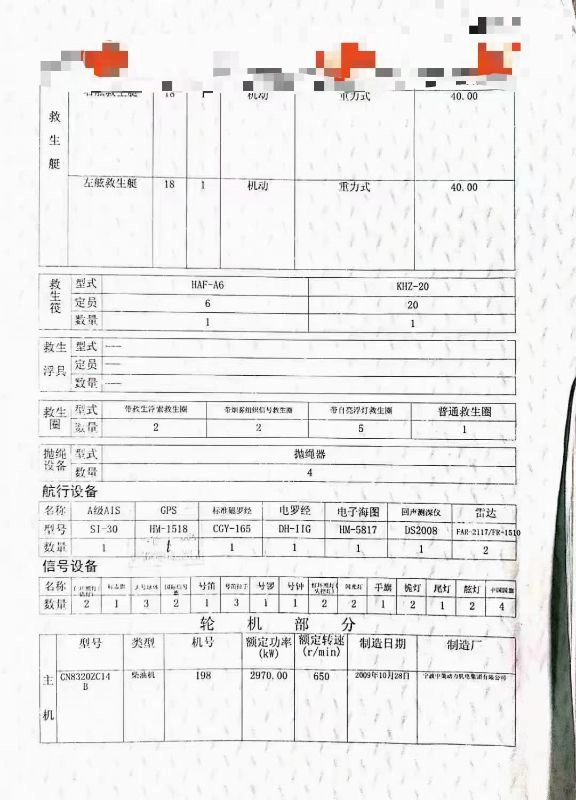 救生艇
右舷救生艇 18 1 机动 重力式 40.00
左舷救生艇 18 1 机动 重力式 40.00
救生筏 型式 HAF-A6 KHZ-20
定员 6 20
数量 1 1
救生浮具 型式 ——
定员 ——
数量 ——
救生圈 型式 带救生浮索救生圈 带烟雾组织信号救生圈 带自亮浮灯救生圈 普通救生圈
数量 2 2 5 1
抛绳设备 型式 抛绳器
数量 4
航行设备
名称 A级AIS GPS 标准磁罗经 电罗经 电子海图 回声测深仪 雷达
型号 SI-30 HM-1518 CGY-165 DH-IIG HM-5817 DS2008 FAR-2117/FR-1510
数量 1 1 1 1 1 1 2
信号设备
名称 号笛 号锣 号钟 闪光灯 手旗 桅灯 尾灯 舷灯 中国国旗
数量 2 1 3 2 1 3 1 1 2 2 1 2 1 2 4
轮机部分
主机 型号 类型 机号 额定功率(kW) 额定转速(r/min) 制造日期 制造厂
CN8320ZC14B 柴油机 198 2970.00 650 2009年10月28日 宁波中策动力机电集团有限公司